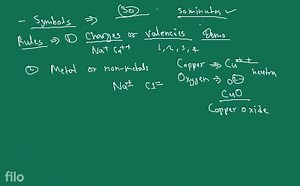 - Symbols ⇒ 30
Rules ⇒ ① Charges or valencies
Na⁺ Ca⁺⁺ 1, 2, 3, 4
② Metal or non-metals
Na⁺ Cl⁻
Copper → Cu⁺⁺
Oxygen → O⁻⁻
CuO
Copper oxide
filo